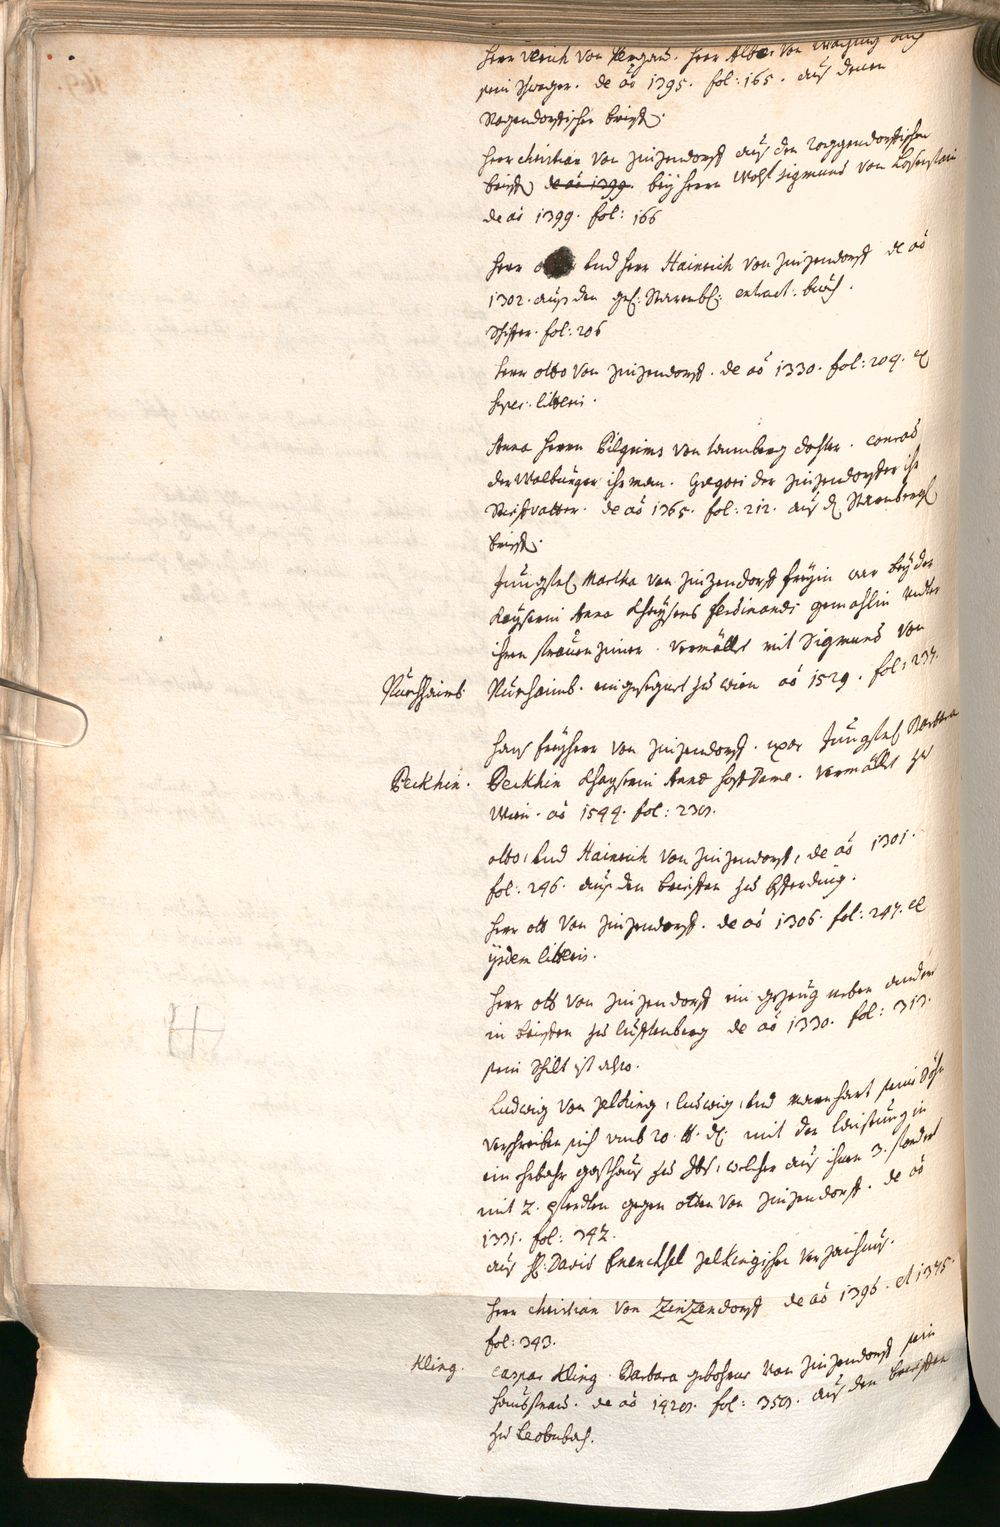 Herr Ulrich von Pergaw. Herr Alber von auch
sein Schwager. de aõ 1395. fol: 165. aus denen
Rogendorffischen brieff.
Herr Christian von Zinzendorff aus den roggendorffischen
brieff de aõ 1399. bey Herrn Wolf Sigmund von Losenstain
de aõ 1399. fol: 166
Herr und Herr Hainrich von Zinzendorff de aõ
1302. aus den Starenb: extract. buch.
fol: 206
Herr otto von Zinzendorff. de aõ 1330. fol: 209. ex
litteris.
Anna Herrn Pilgrims von tochter. Conrad
der Walburger ihr man. Gregori der Zinzendorffer ihr
Stiefvatter. de aõ 1365. fol: 212. aus d Starenbergl
brieff.
Jungfrl Martha von Zinzendorff freyin war bey der
Kayserin Anna Khaysers Ferdinandi gemahlin under
ihren frauenzimer. vermählt mit Sigmund von
Nürhaimb Nürhaimb. eingesegnet zu wien aõ 1529. fol: 237.
Hans freyherr von Zinzendorff. uxor Jungfrl Barbara
Peckhin. Peckhin Khayserin Annæ hoff Dame. vermählt zu
Wien. aõ 1544. fol: 239.
otto, und Hainrich von Zinzendorff, de aõ 1301.
fol: 246. aus den brieffen zu Efferding.
Herr ott von Zinzendorff. de aõ 1306. fol: 247. ex
ijsdem litteris.
Herr ott von Zinzendorff ein gezeug neben andern
in brieffen zu de aõ 1330. fol: 313.
sein Schilt ist also.
Ludwig von Zelking, ludwig, und mannhart seine Söhn
verschreiben sich umb 20. ℔. dl. mit der laistung in
ein erbahr gasthaus zu Ibs, welcher aus ihnen 3.
mit 2. pferdten gegen otten von Zinzendorff. de aõ
1331. fol: 342.
aus H: David Enenckhel Zelkingischen verzaichnus.
Herr Christian von Zinzendorff de aõ 1396. et 1375.
fol: 343.
Kling. Caspar Kling. Barbara gebohrne von Zinzendorff sein
hausfraw. de aõ 1429. fol: 359. aus den brieffen
zu Leobnbach.